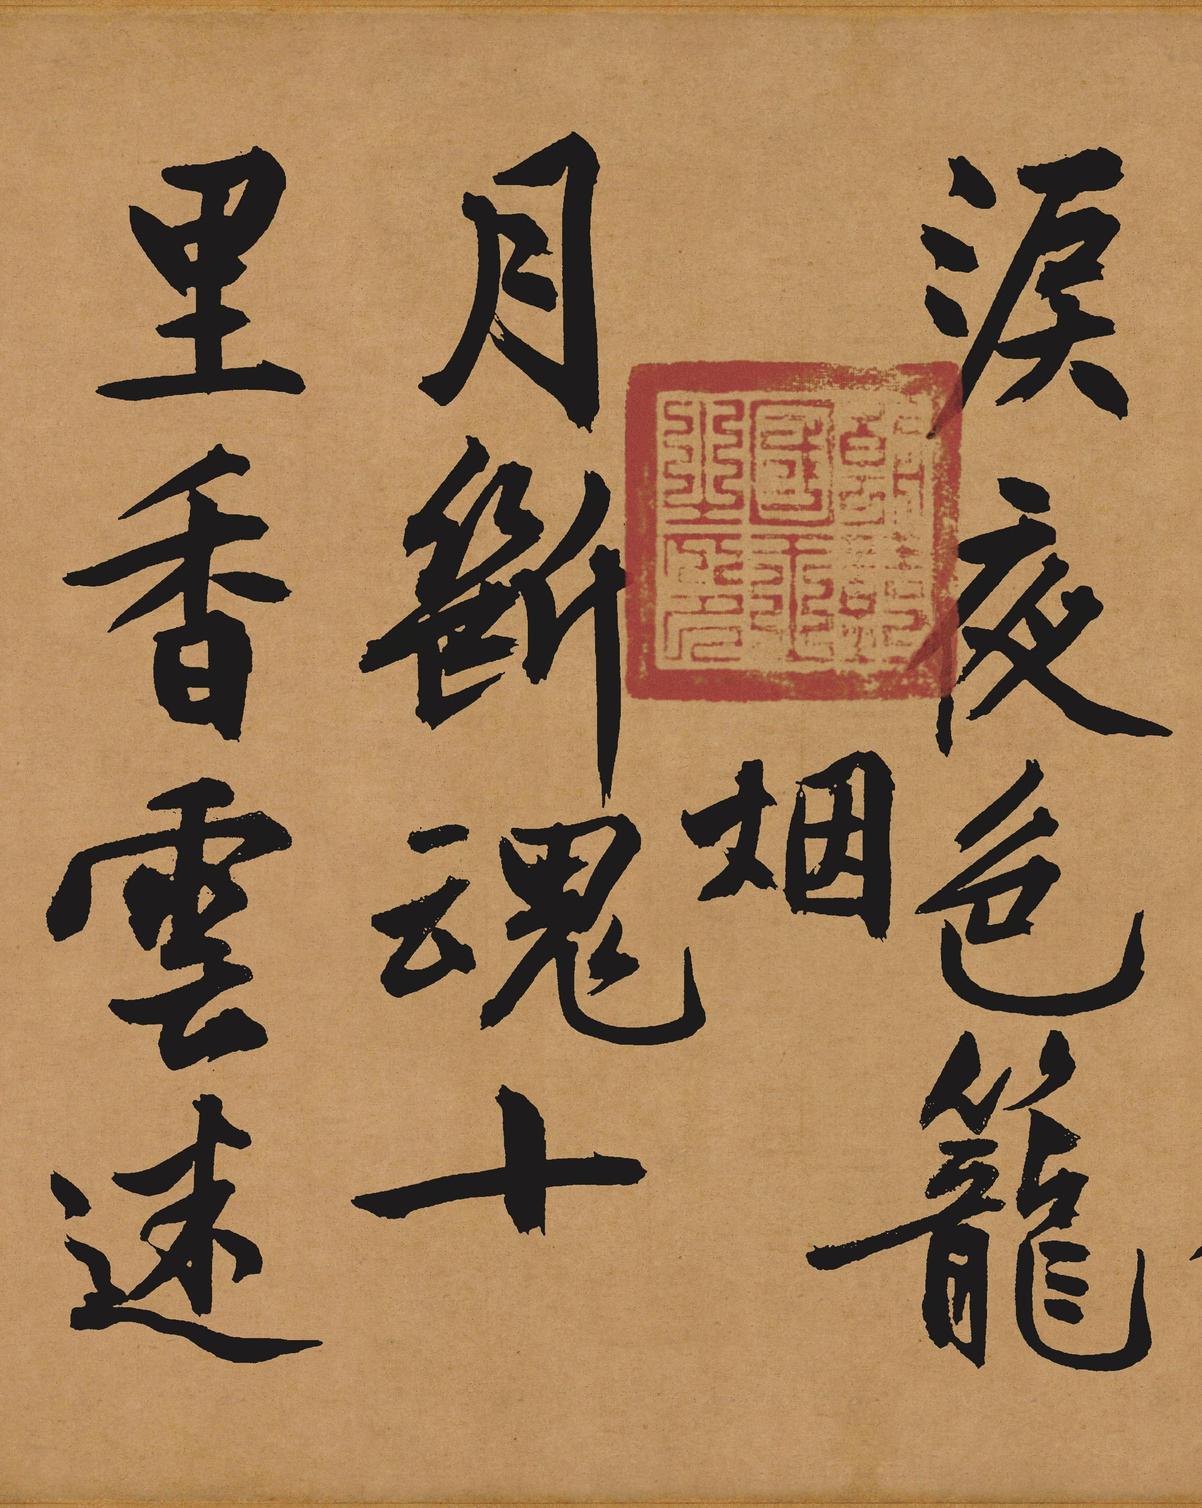 淚夜色籠
烟
月斷魂十
里香雲迷